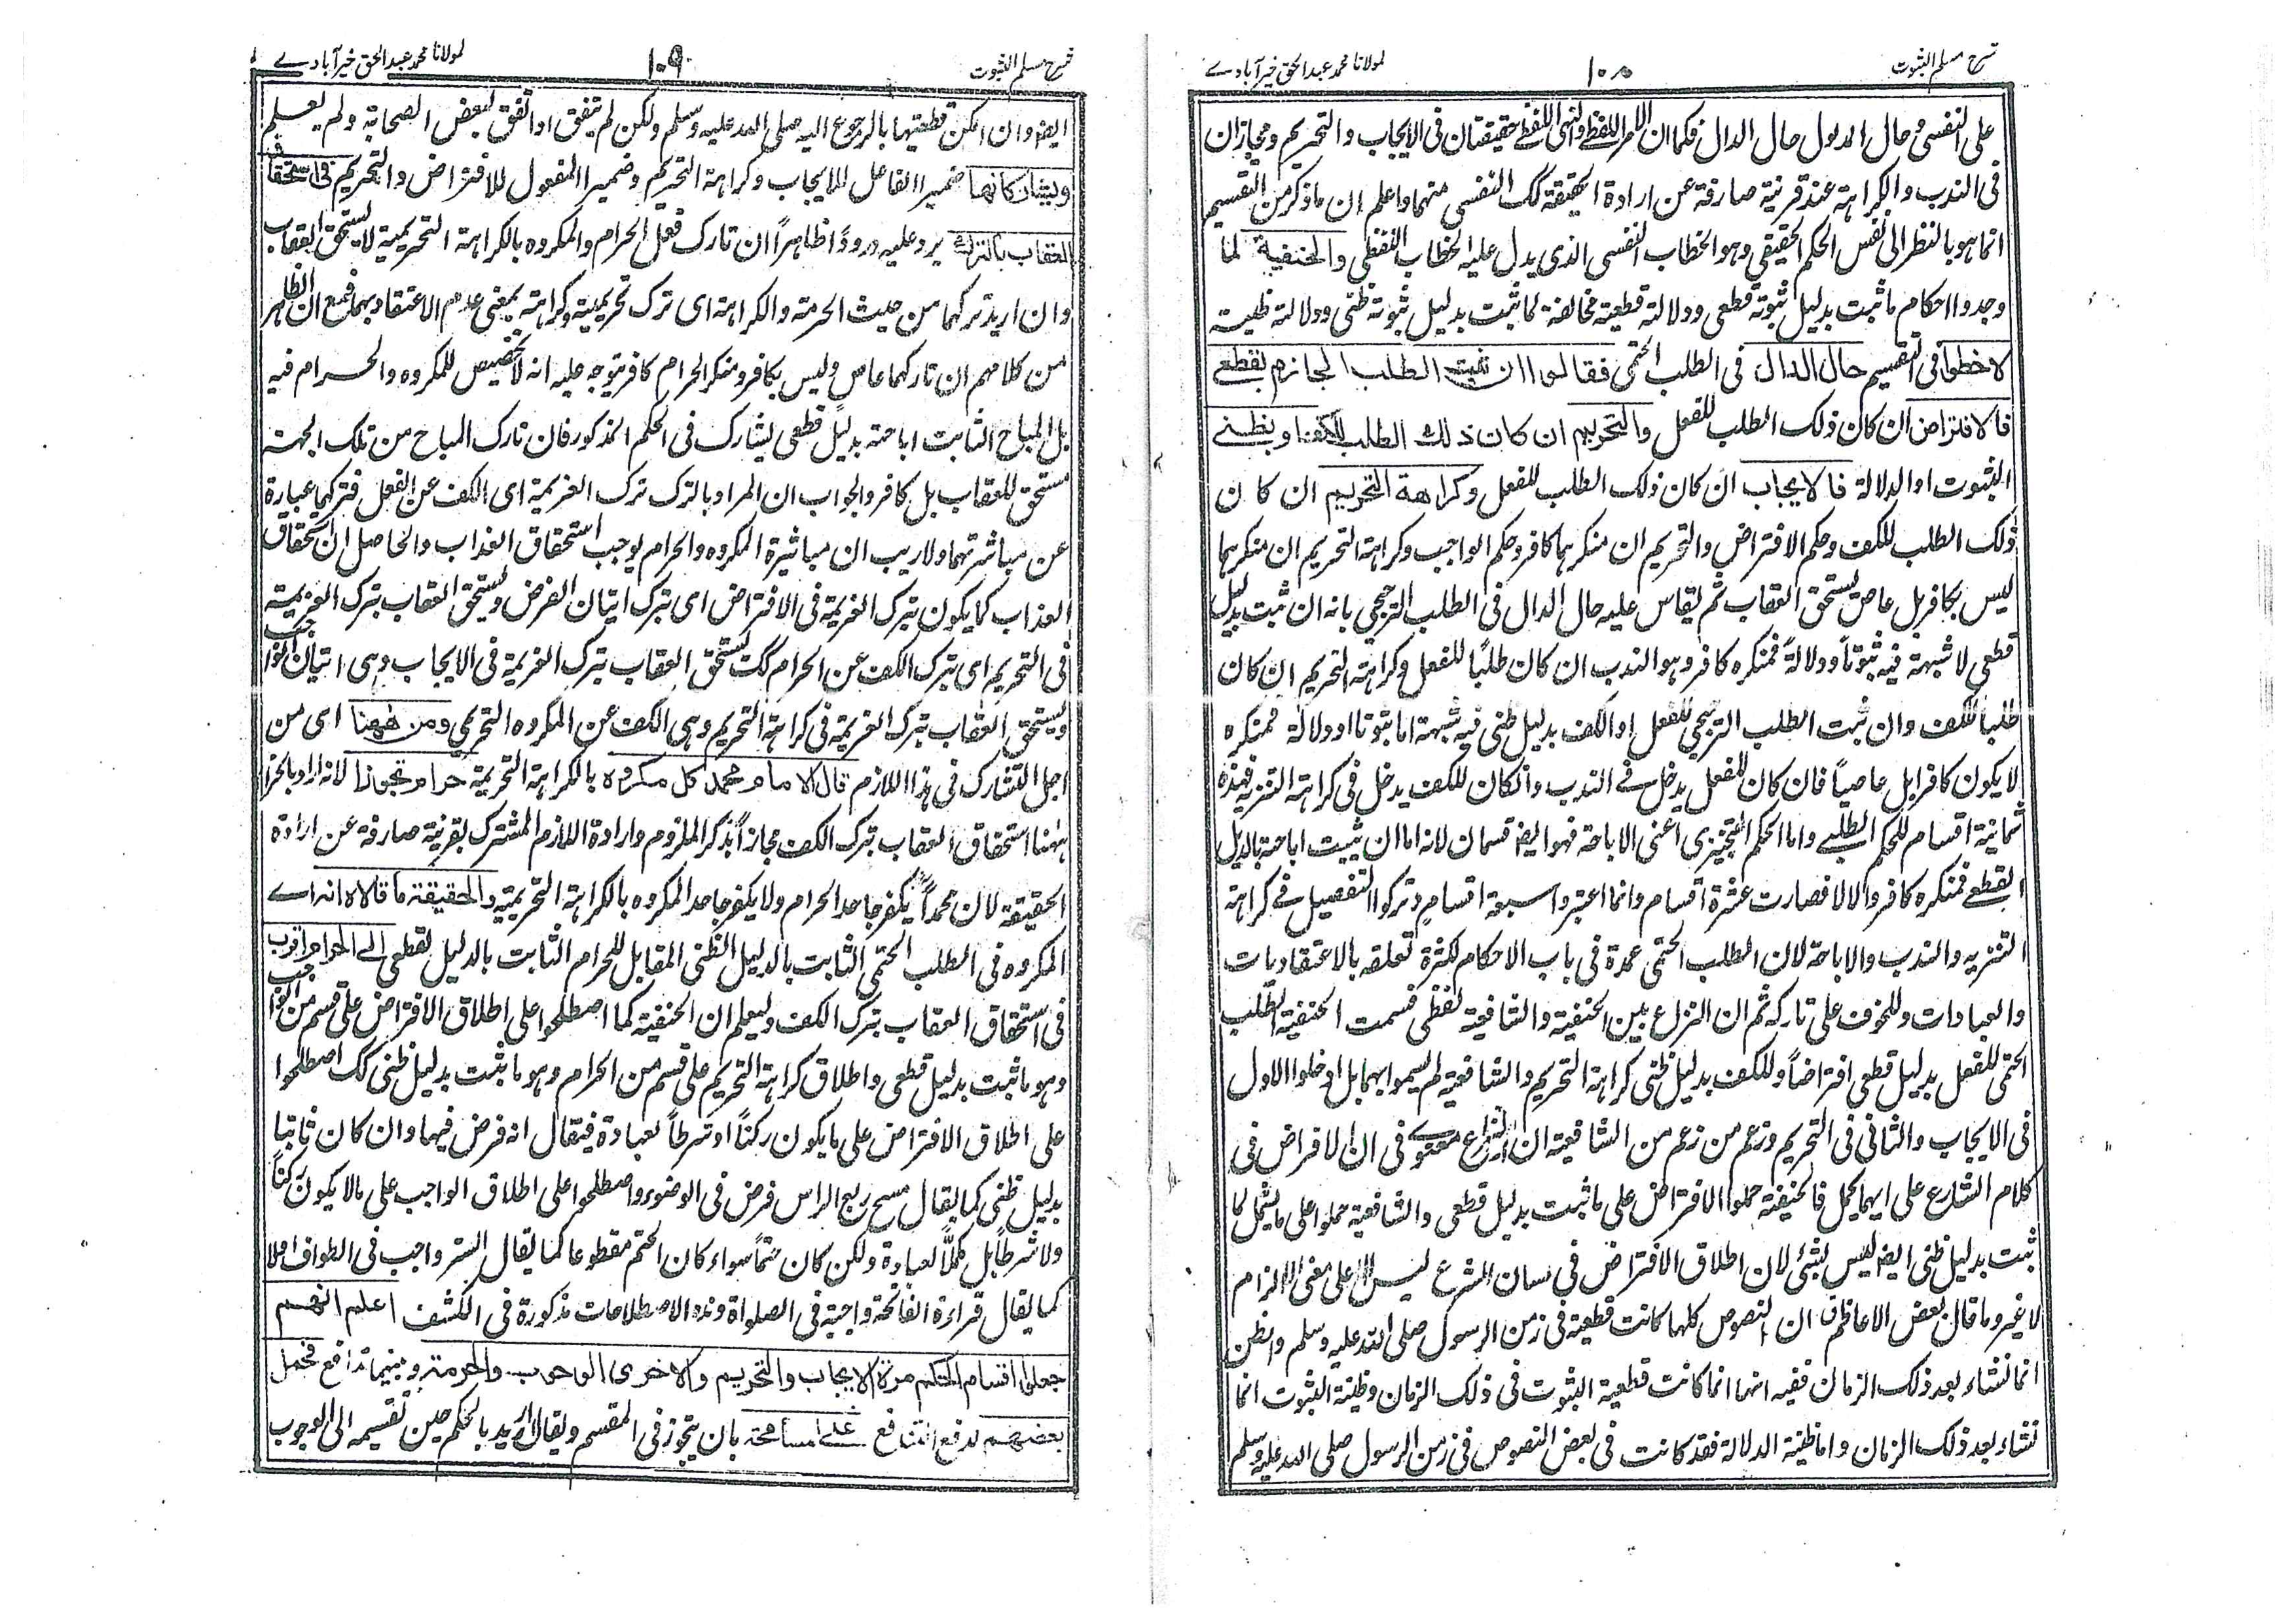 شرح مسلم الثبوت
١٠٨
لمولانا محمد عبدالحق خيرآبادے
على النفسى حال المدلول حال الدال فكما ان الامر اللفظى والنهى اللفظى حقيقتان فى الايجاب والتحريم ومجازان
فى الندب والكراهة عند قرينة صارفة عن ارادة الحقيقة كك النفسى منهما واعلم ان ما ذكر من التقسيم
انما هو بالنظر الى نفس الحكم الحقيقى وهو الخطاب النفسى الذى يدل عليه الخطاب اللفظى والحنفية لما
وجدوا احكام ما ثبت بدليل ثبوته قطعى ودلالة قطعية مخالفة لما ثبت بدليل ثبوته ظنى ودلالة ظنية
لاحظوا فى التقسيم حال الدال فى الطلب الحتمى فقالوا ان ثبت الطلب الجازم بقطعى
فالافتراض ان كان ذلك الطلب للفعل والتحريم ان كان ذلك الطلب للكف او بظنى
الثبوت او الدلالة فالايجاب ان كان ذلك الطلب للفعل وكراهة التحريم ان كان
ذلك الطلب للكف وحكم الافتراض والتحريم ان منكرهما كافر وحكم الواجب وكراهة التحريم ان منكرهما
ليس بكافر بل عاص يستحق العقاب ثم يقاس عليه حال الدال فى الطلب الترجيحى بانه ان ثبت بدليل
قطعى لا شبهة فيه ثبوتا ودلالة فمنكره كافر وهو الندب ان كان طلبا للفعل وكراهة التحريم ان كان
طلبا للكف وان ثبت الطلب الترجيحى للفعل او الكف بدليل ظنى فيه شبهة اما ثبوتا او دلالة فمنكره
لا يكون كافرا بل عاصيا فان كان للفعل يدخل فے الندب وانكان للكف يدخل فى كراهة التنزيه فهذه
ثمانية اقسام للحكم الطلبے واما الحكم التخييرى اعنى الاباحة فهو ايضا قسمان لانه اما ان يثبت اباحته بالدليل
القطعے فمنكره كافر والا لا فصارت عشرة اقسام وانما اعتبروا سبعة اقسام وتركوا التفصيل فے كراهة
التنزيه والندب والاباحة لان الطلب الحتمى عمدة فى باب الاحكام لكثرة تعلقه بالاعتقاديات
والعبادات وللخوف على تاركه ثم ان النزاع بين الحنفية والشافعية لفظى فسمت الحنفية الطلب
الحتمى للفعل بدليل قطعى افتراضاً وللكف بدليل ظنى كراهة التحريم والشافعية لم يسموا بهما بل ادخلوا الاول
فى الايجاب والثانى فى التحريم وزعم من زعم من الشافعية ان النزاع معنوے فى ان الافتراض فى
كلام الشارع على ايهما يحمل فالحنفية حملوا الافتراض على ما ثبت بدليل قطعى والشافعية حملوا على ما يشمل لما
ثبت بدليل ظنى ايضا ليس بشئ لان اطلاق الافتراض فى لسان الشرع ليس الا على معنى الالزام
لا غير وما قال بعض الاعاظم ان النصوص كلها كانت قطعية فى زمن الرسول صلى الله عليه وسلم والظن
انما نشاء بعد ذلك الزمان ففيه انها انما كانت قطعية الثبوت فى ذلك الزمان وظنية الثبوت انما
نشاء بعد ذلك الزمان واما ظنية الدلالة فقد كانت فى بعض النصوص فى زمن الرسول صلى الله عليه وسلم
شرح مسلم الثبوت
١٠٩
لمولانا محمد عبدالحق خيرآبادے
ايضا وان امكن قطعيتها بالرجوع اليه صلى الله عليه وسلم ولكن لم يتفق او اتفق لبعض الصحابة ولم يعلم
ويشاركانهما ضمير الفاعل للايجاب وكراهة التحريم وضمير المفعول للافتراض والتحريم فى استحقاق
العقاب بالترك يرد عليه ورودًا ظاهراً ان تارك فعل الحرام والمكروه بالكراهة التحريمية لا يستحق العقاب
وان اريد تركهما من حيث الحرمة والكراهة اى ترك تحريمية وكراهة بمعنى عدم الاعتقاد بهما فمع ان الظاهر
من كلامهم ان تاركهما عاص وليس بكافر ومنكر الحرام كافر يتوجه عليه انه لا تخصيص للمكروه والحرام فيه
بل المباح الثابت اباحته بدليل قطعى يشارك فى الحكم المذكور فان تارك المباح من تلك الجهة
مستحق للعقاب بل كافر والجواب ان المراد بالترك ترك العزيمة اى الكف عن الفعل فتركهما عبارة
عن مباشرتهما ولا ريب ان مباشرة المكروه والحرام يوجب استحقاق العذاب والحاصل ان استحقاق
العذاب كما يكون بترك العزيمة فى الافتراض اى بترك اتيان الفرض ويستحق العقاب بترك العزيمة
فى التحريم اى بترك الكف عن الحرام كك يستحق العقاب بترك العزيمة فى الايجاب وهى اتيان الواجب
ويستحق العقاب بترك العزيمة فى كراهة التحريم وهى الكف عن المكروه التحريمى ومن ههنا اى من
اجل التشارك فى هذا اللازم قال الامام محمد كل مكروه بالكراهة التحريمية حرام تجوزا لانه اراد بالحرام
ههنا استحقاق العقاب بترك الكف مجازاً بذكر الملزوم وارادة اللازم المشترك بقرينة صارفة عن ارادة
الحقيقة لان محمداً يكفر جاحد الحرام ولا يكفر جاحد المكروه بالكراهة التحريمية والحقيقة ما قالاه انه اے
المكروه فى الطلب الحتمى الثابت بالدليل الظنى المقابل للحرام الثابت بالدليل القطعى الے الحرام اقرب
فى استحقاق العقاب بترك الكف وليعلم ان الحنفية كما اصطلحوا على اطلاق الافتراض على قسم من الواجب
وهو ما ثبت بدليل قطعى واطلاق كراهة التحريم على قسم من الحرام وهو ما ثبت بدليل ظنى كك اصطلحوا
على اطلاق الافتراض على ما يكون ركناً او شرطاً لعبادة فيقال انه فرض فيها وان كان ثابتا
بدليل ظنى كما يقال مسح ربع الراس فرض فى الوضوء واصطلحوا على اطلاق الواجب على ما لا يكون ركناً
ولا شرطاً بل مكملًا لعبادة ولكن كان حتماً سواء كان الحتم مقطوعا كما يقال الستر واجب فى الطواف ام لا
كما يقال قراءة الفاتحة واجبة فى الصلواة وهذه الاصطلاحات مذكورة فى الكشف اعلم انهم
جعلوا اقسام الحكم مرة الايجاب والتحريم والاخرى الوجوب والحرمة وبينهما تدافع فحمل
بعضهم لدفع التدافع علے المسامحة بان يتجوز فى المقسم ويقال اريد بالحكم حين تقسيمه الى الوجوب